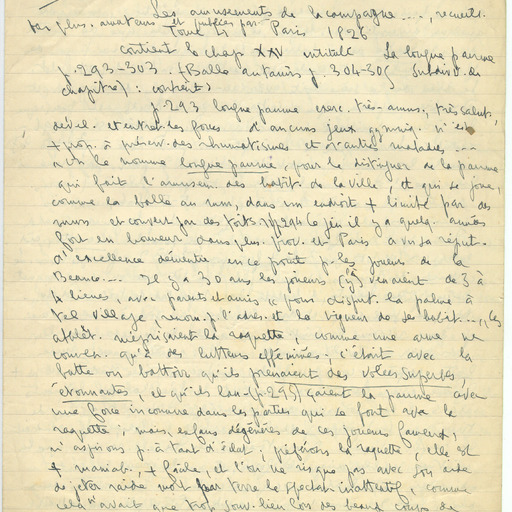 Les amusements de la campagne ..., recueill.
par plus. amateurs et publiés par
Tome 4 Paris 1826
contient le chap XXV intitulé La longue paume
p. 293-303. (Balle au tamis p. 304-305 subdiv. du
chapitre) : contient :
p. 293 longue paume exerc. très amus., très salut.,
dével. et entret. les forces d'aucuns jeux gymniq. n'est
+ prop. à préserv. des rhumatismes et d'autres maladies ...
« On le nomme longue paume, pour le distinguer de la paume
qui fait l'amusem. des habit. de la ville, et qui se joue,
comme la balle au mur, dans un endroit + limité par des
murs et couvert par des toits. p. 294 le jeu il y a quelq. années
fort en honneur dans plus. prov. et Paris a vu sa réput.
d'excellence démentie en ce point p. les joueurs de la
Beauce ... Il y a 30 ans les joueurs venaient de 3 à
4 lieues, avec parents et amis « pour disput. la palme à
tel village, renom. p. l'adres. et la vigueur de ses habit. ..., les
athlèt. méprisaient la raquette, comme une arme ne
conven. qu'à des lutteurs efféminés ; c'étoit avec la
batte ou battoir qu'ils prenaient des volées superbes,
étonnantes, et qu'ils (p. 295) la paume avec
une force inconnue dans les parties qui se font avec la
raquette ; mais, enfans dégénérés de ces joueurs fameux,
n'aspirons p. à tant d'éclat ; préférons la raquette, elle est
+ maniab., + facile, et l'on ne risque pas avec son aide
de jeter raide mort par terre le spectat. inattentif, comme
cela avait que trop souv. lieu lors des beaux coups de